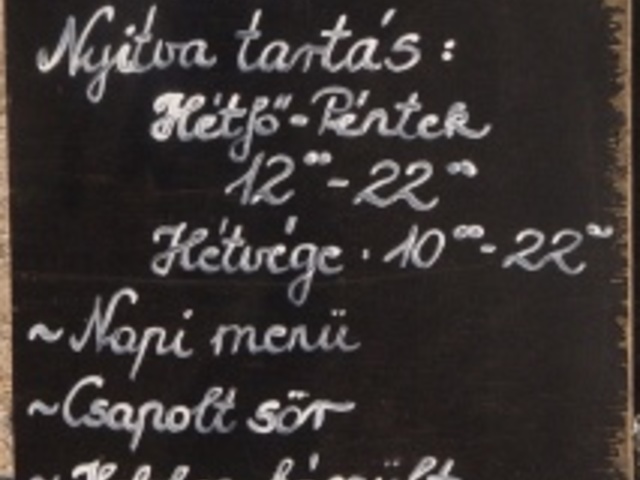 Nyitva tartás:
Hétfő-Péntek
12⁰⁰-22⁰⁰
Hétvége · 10⁰⁰-22⁰⁰
~Napi menü
~Csapolt sör